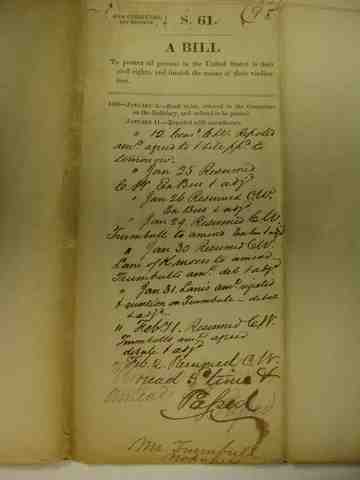 39TH CONGRESS,
1ST SESSION.
S. 61.
A BILL
To protect all persons in the United States in their
civil rights, and furnish the means of their vindica-
tion.
1866—JANUARY 5.—Read twice, referred to the Committee
on the Judiciary, and ordered to be printed.
JANUARY 11.—Reported with amendments.
" 12 C.W. Reported
amt agreed to & to
tomorrow.
" Jan 25 Resumed
C.W. Ex Bus & adj
" Jan 26 Resumed C.W.
Ex Bus & adj
" Jan 29. Resumed C.W.
Trumbull to amend & adj
" Jan 30 Resumed C.W.
Lane of K. moves to amend
Trumbulls amt deb & adj
" Jan 31. Lane's amt rejected
& question on Trumbulls - debate
& adj
" Feb 1. Resumed C.W.
Trumbulls amt agreed
debate & adj
" Feb. 2 Resumed C.W.
read 3d time &
Passed
Mr Trumbull